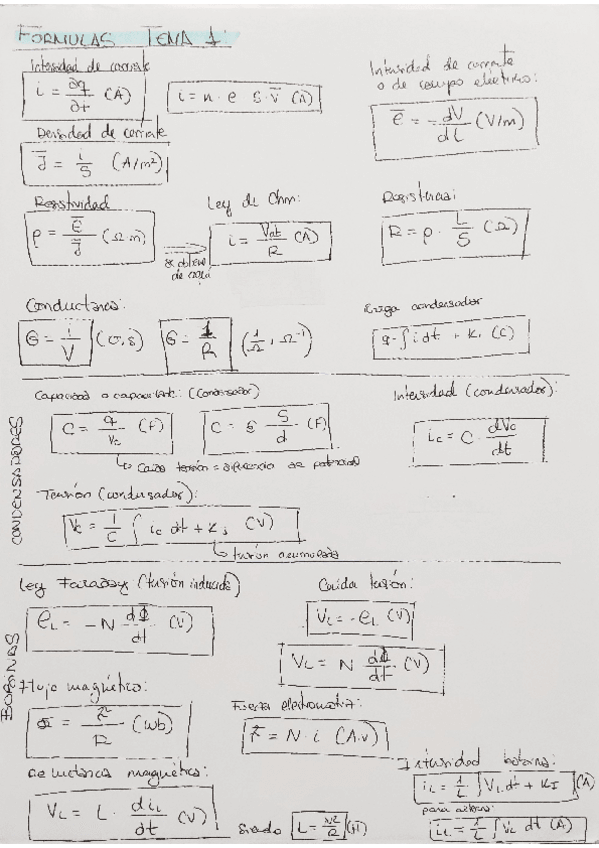 FORMULAS TEMA 1:
Intensidad de corriente
i = ∂q/∂t (A)
i = n · e S · v̄ (A)
Intensidad de corriente
o de campo eléctrico:
ē = - dV/dL (V/m)
Densidad de corriente
J̄ = i/S (A/m²)
Resistividad
ρ = Ē/J̄ (Ω m)
se obtiene
de aquí
Ley de Ohm:
i = Vab/R (A)
Resistencia:
R = ρ · L/S (Ω)
Conductancia:
G = i/V (σ, S)
G = 1/R (1/Ω, Ω⁻¹)
Carga condensador
q = ∫ i dt + K₁ (C)
CONDENSADORES
Capacidad o capacitancia: (condensador)
C = q/Vc (F)
C = ε S/d (F)
↳ Caída tensión = diferencia de potencial
Intensidad (condensador):
ic = C · dVc/dt
Tensión (condensador):
Vc = 1/C ∫ ic dt + K; (V)
↳ tensión acumulada
BOBINAS
Ley Faraday (tensión inducida)
eL = - N dΦ/dt (V)
Caída tensión:
VL = - eL (V)
VL = N dΦ/dt (V)
Flujo magnético:
(wb)
Fuerza electromotriz:
F̄ = N · i (A.v)
magnética:
VL = L · diL/dt (V)
Siendo L = N²/R (H)
Intensidad bobina:
iL = 1/L · ∫ VL dt + KI (A)
iL = 1/L ∫ VL dt (A)